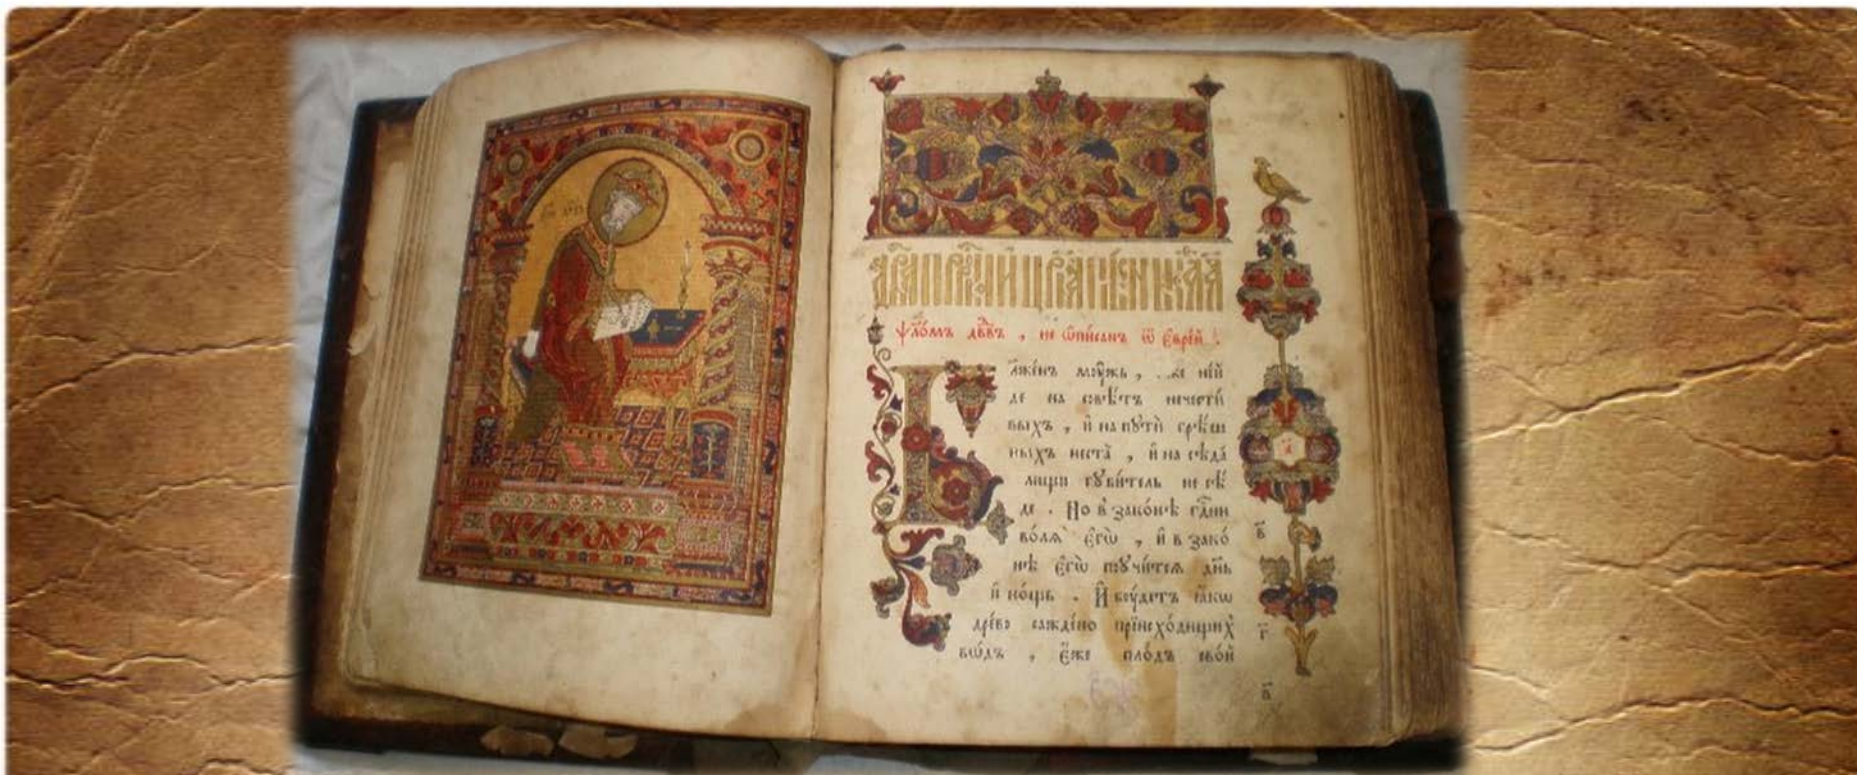 ѱло́мъ дв҃дъ , не ѡ҆пи́санъ ѿ є҆вре́й
л҃же́нъ мꙋ́жъ , и́й
де на совѣ́тъ нечести́
выхъ , и҆ на пꙋтѝ грѣ́ш
ныхъ нестà , и҆ на сѣда́
лищи гꙋби́тель не сѣ́
де . Но в зако́нѣ гдⷭ҇ни
во́лѧ є҆гѡ̀ , и҆ в зако́
нѣ є҆гѡ̀ поꙋчи́тсѧ дн҃ь
и҆ но́щь . И҆ бꙋ́детъ ꙗ҆́кѡ
дре́во саждено̀ при и҆схо́дищихъ
во́дъ , є҆́же пло́дъ сво́й
в҃
г҃